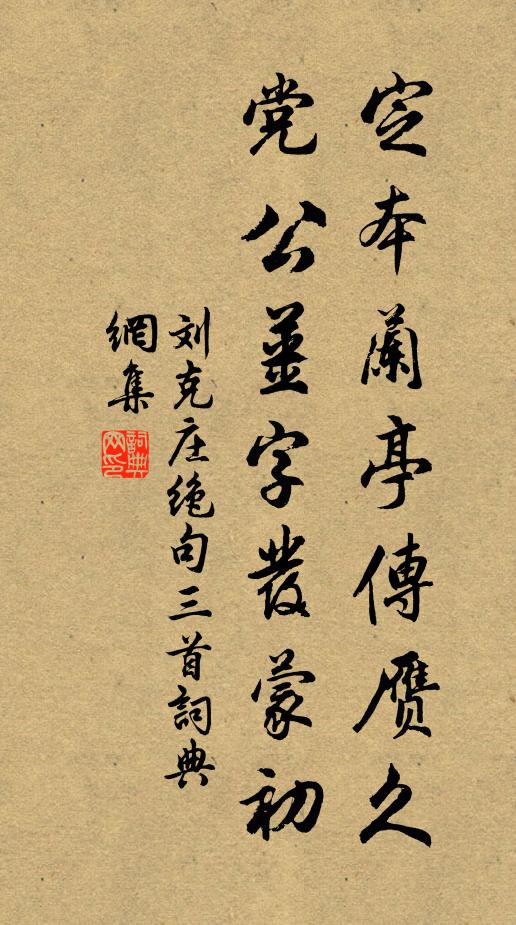 定本蘭亭傳赝久
党公薑字發蒙初
刘克庄絶句三首詞典
網集
詞典
网印